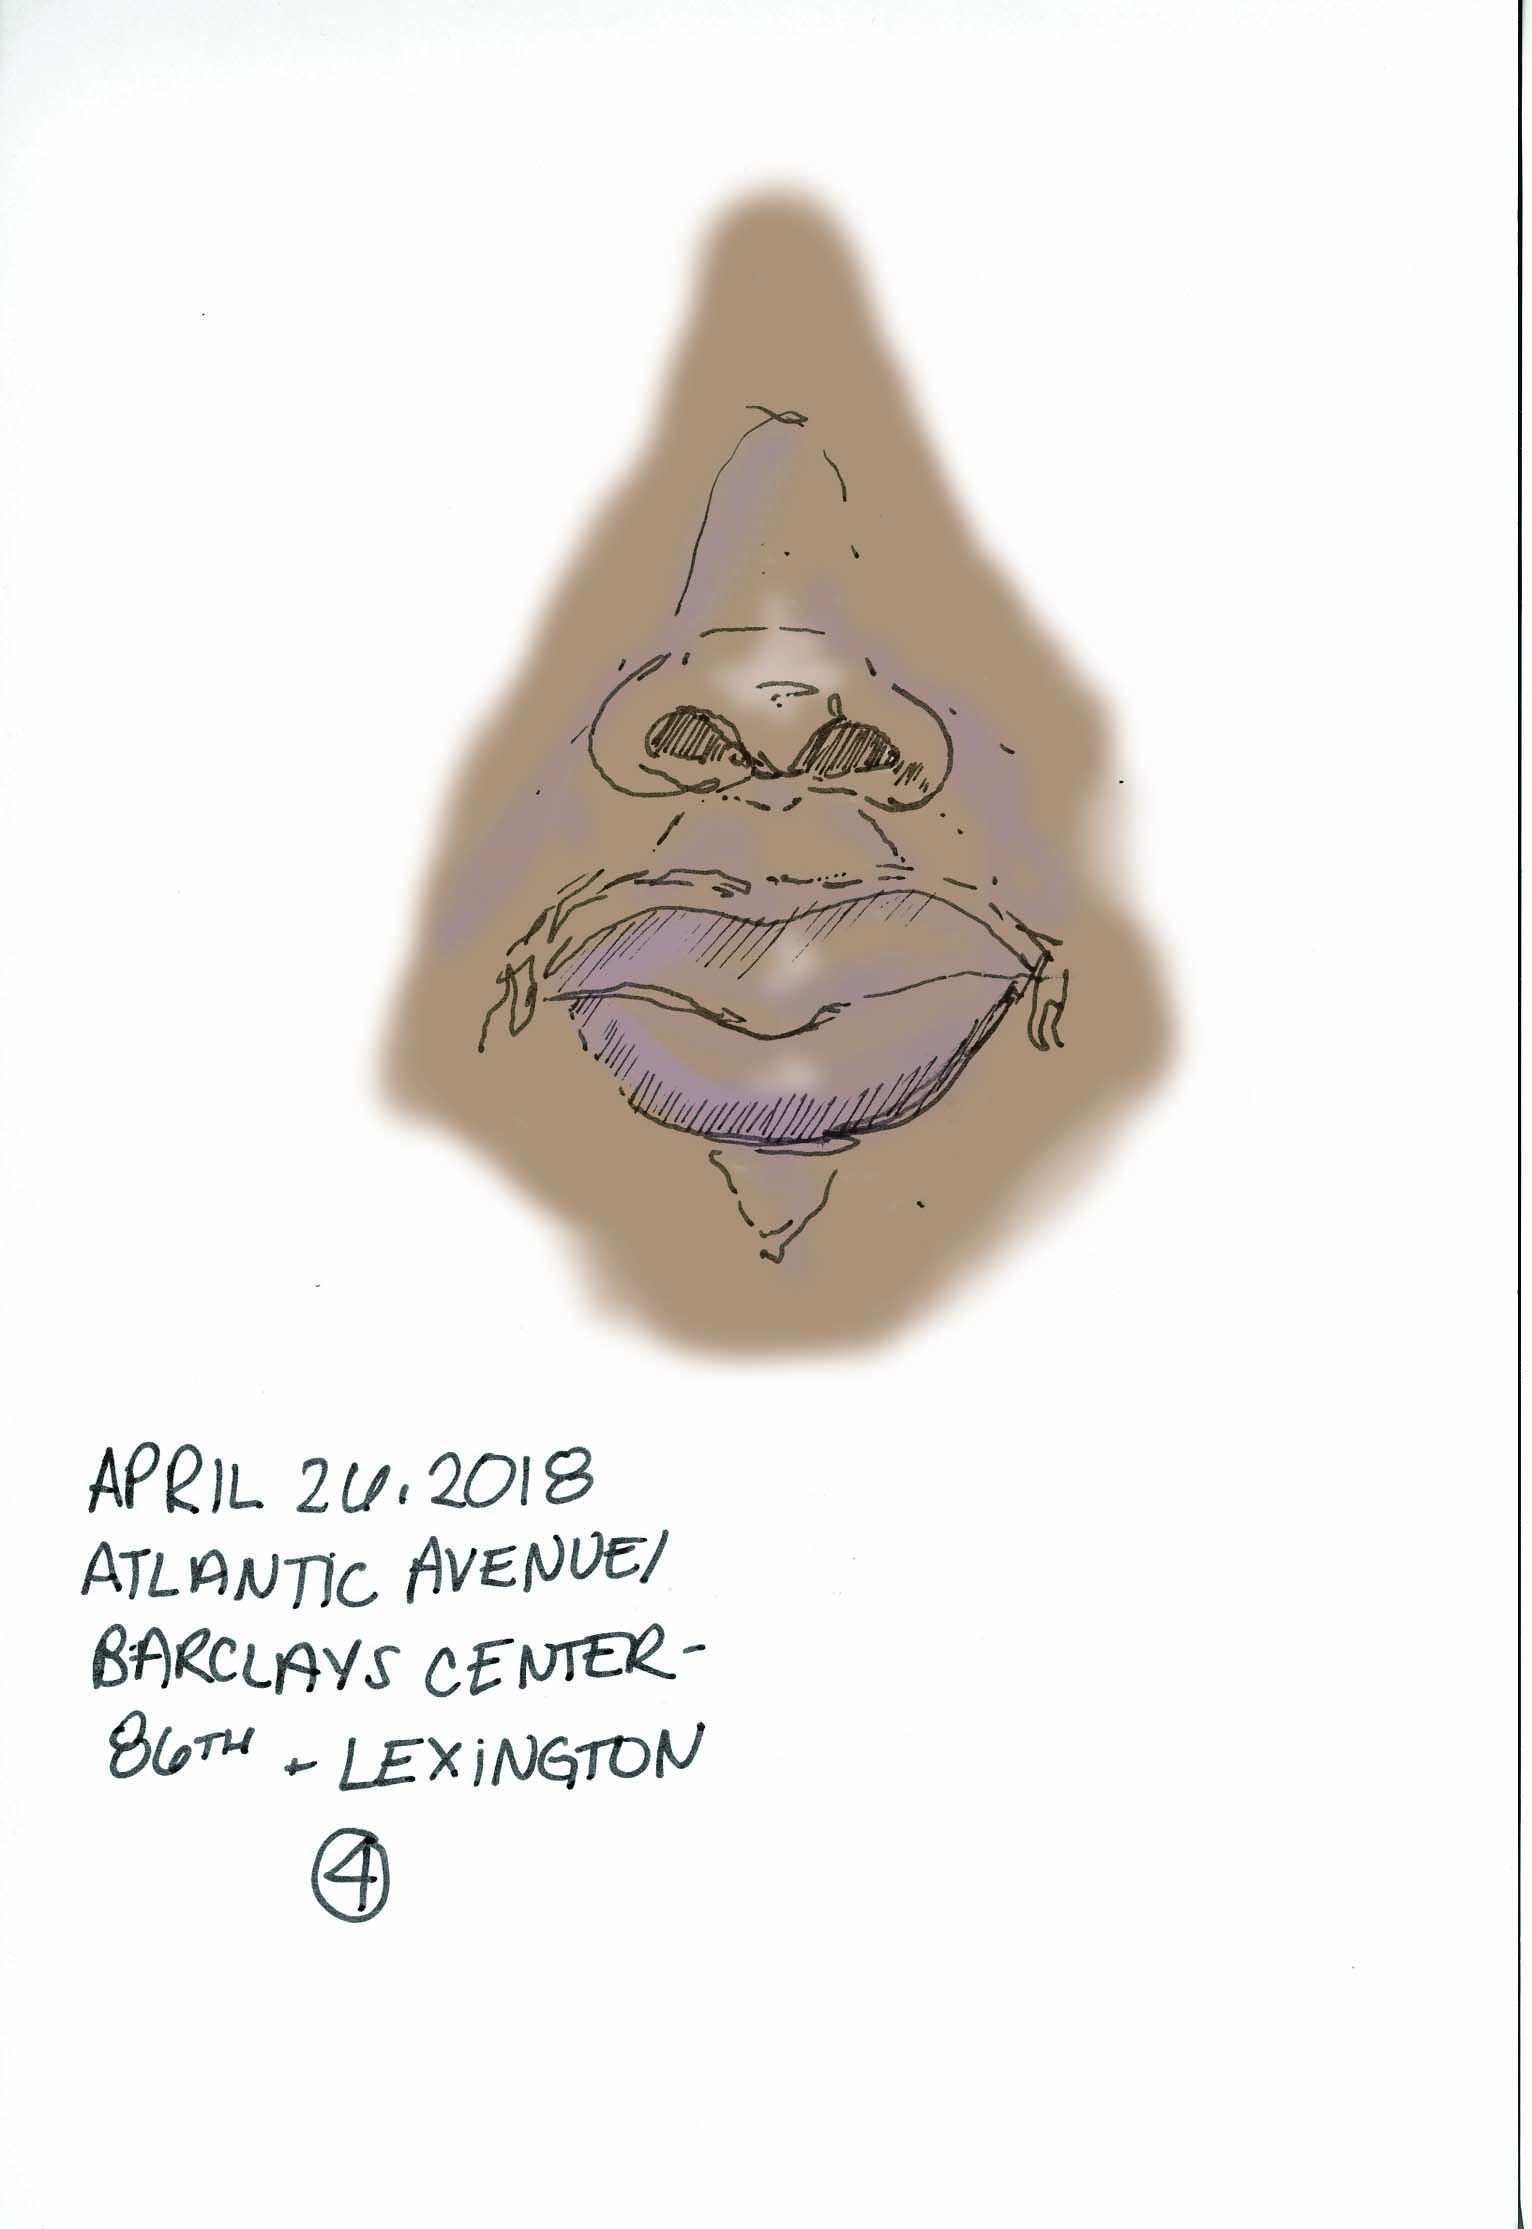 APRIL 26. 2018
ATLANTIC AVENUE/
BARCLAYS CENTER-
86TH + LEXINGTON
4